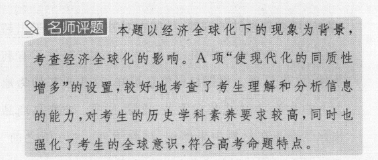 名师评题 本题以经济全球化下的现象为背景，
考查经济全球化的影响。A 项“使现代化的同质性
增多”的设置，较好地考查了考生理解和分析信息
的能力，对考生的历史学科素养要求较高，同时也
强化了考生的全球意识，符合高考命题特点。